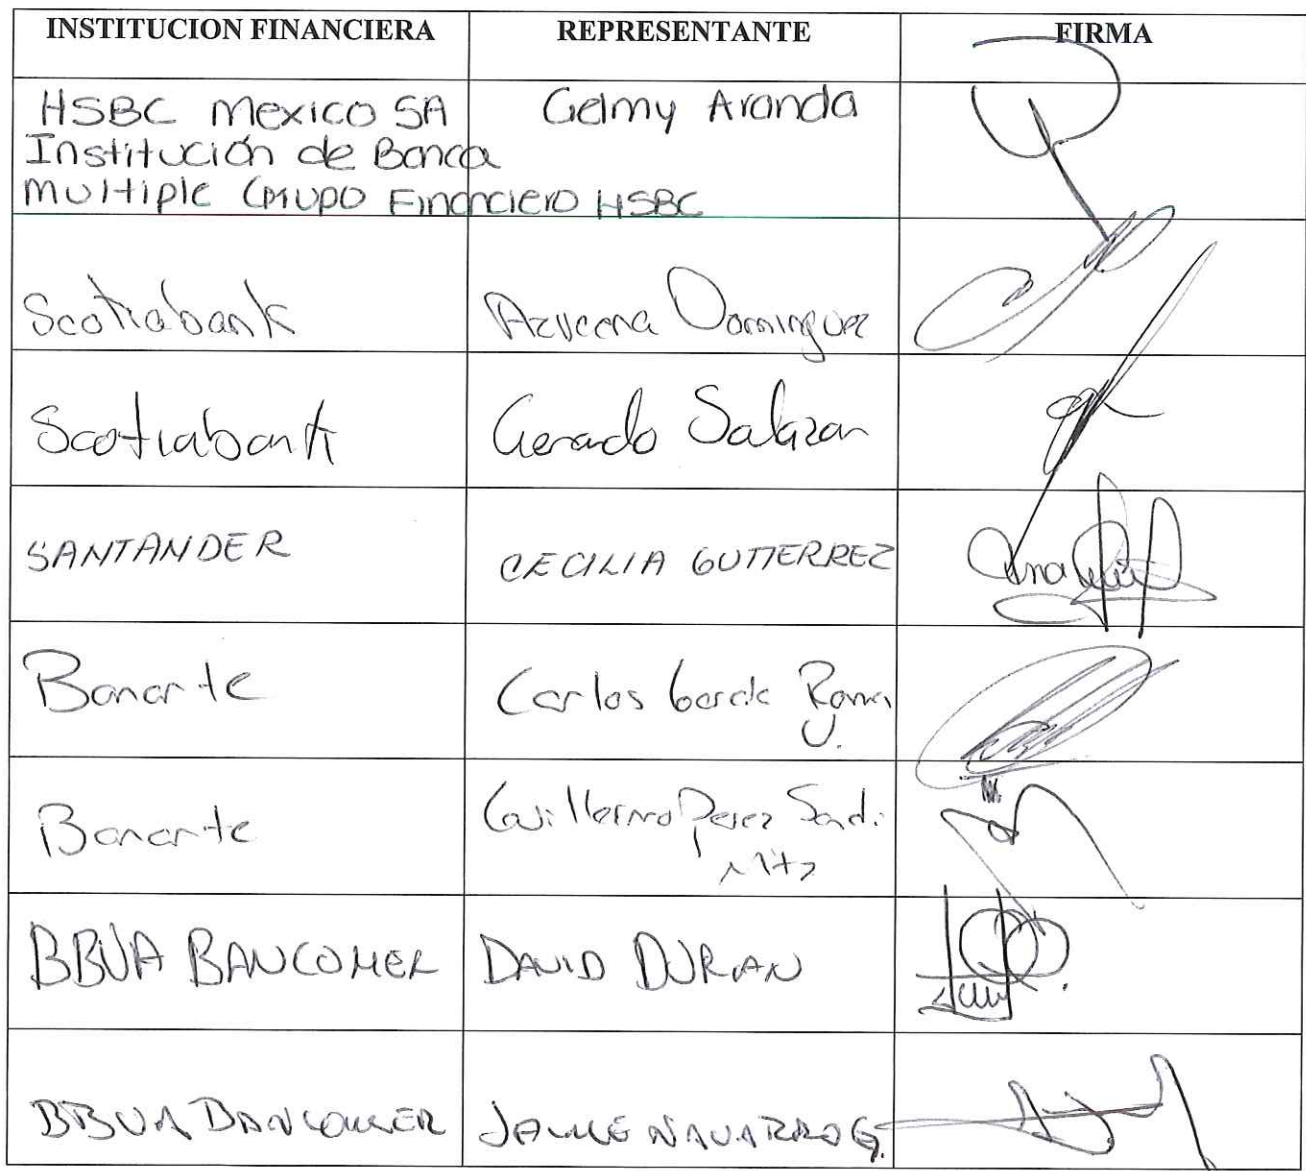 INSTITUCION FINANCIERA REPRESENTANTE FIRMA
HSBC Mexico SA Gelmy Aranda
Institución de Banca
Multiple Grupo Financiero HSBC
Scotiabank Azucena Dominguez
Scotiabank Gerardo Salazar
SANTANDER CECILIA GUTIERREZ
Banorte Carlos Garcia
Banorte Guillermo Perez Sandi
BBVA BANCOMER DAVID DURAN
BBVA BANCOMER JAIME NAVARRO G.